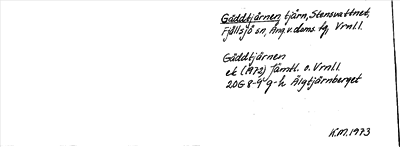 Gäddtjärnen tjärn, Stensvattnet,
Fjällsjö sn, Ång. v. doms. tg, Vrnl.l.
Gäddtjärnen
ek (1972) Jämtl. o. Vrnl.l
20G 8-9 g-h Älgtjärnberget
K.M. 1973